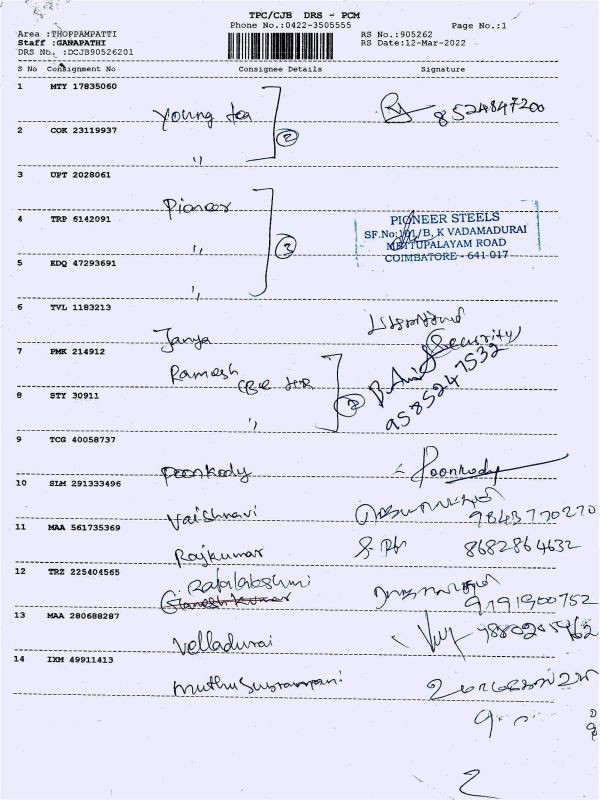 TPC/CJB DRS - PCM
Phone No.:0422-3505555 Page No.:1
Area :THOPPAMPATTI RS No.:905262
Staff :GANAPATHI RS Date:12-Mar-2022
DRS No. :DCJB90526201
S No Consignment No Consignee Details Signature
1 MTY 17835060
Young tea 8524847200
2 COK 23119937
2
"
3 UPT 2028061
Pioneer
4 TRP 6142091
PIONEER STEELS
SF.No:101/B, K VADAMADURAI
" METTUPALAYAM ROAD
3 COIMBATORE - 641 017
5 EDQ 47293691
"
6 TVL 1183213
Janya
Security
7 PMK 214912
Ramesh CBE HR
9585247532
8 STY 30911
2
"
9 TCG 40058737
Poonkody Poonkody
10 SLM 291333496
Vaishnavi 9843770270
11 MAA 561735369
Rajkumar 8682864632
12 TRZ 225404565
Rajalakshmi
Ganesh kumar 9191900752
13 MAA 280688287
Velladurai
14 IXM 49911413
Muthu Subramani
2